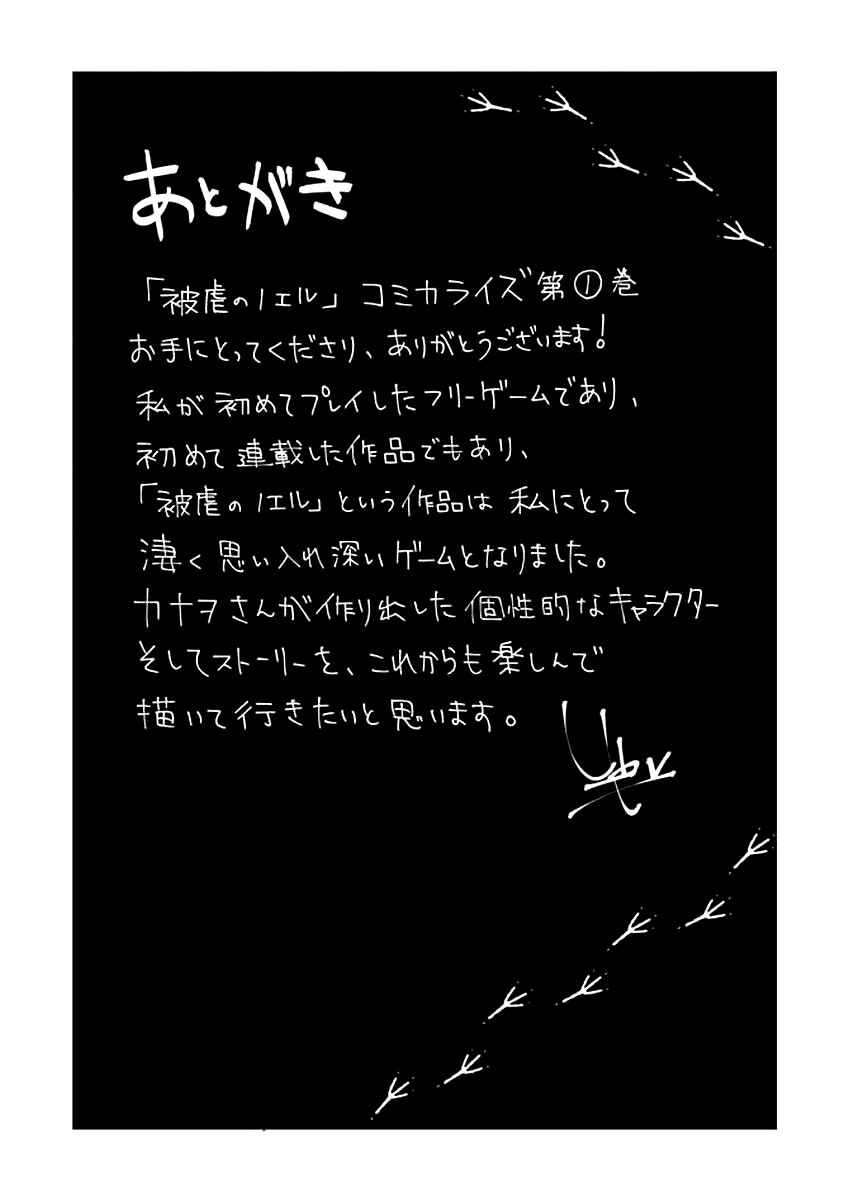 あとがき
「被虐のノエル」コミカライズ第①巻
お手にとってくださり、ありがとうございます!
私が初めてプレイしたフリーゲームであり、
初めて連載した作品でもあり、
「被虐のノエル」という作品は私にとって
凄く思い入れ深いゲームとなりました。
カナヲさんが作り出した個性的なキャラクター
そしてストーリーを、これからも楽しんで
描いて行きたいと思います。